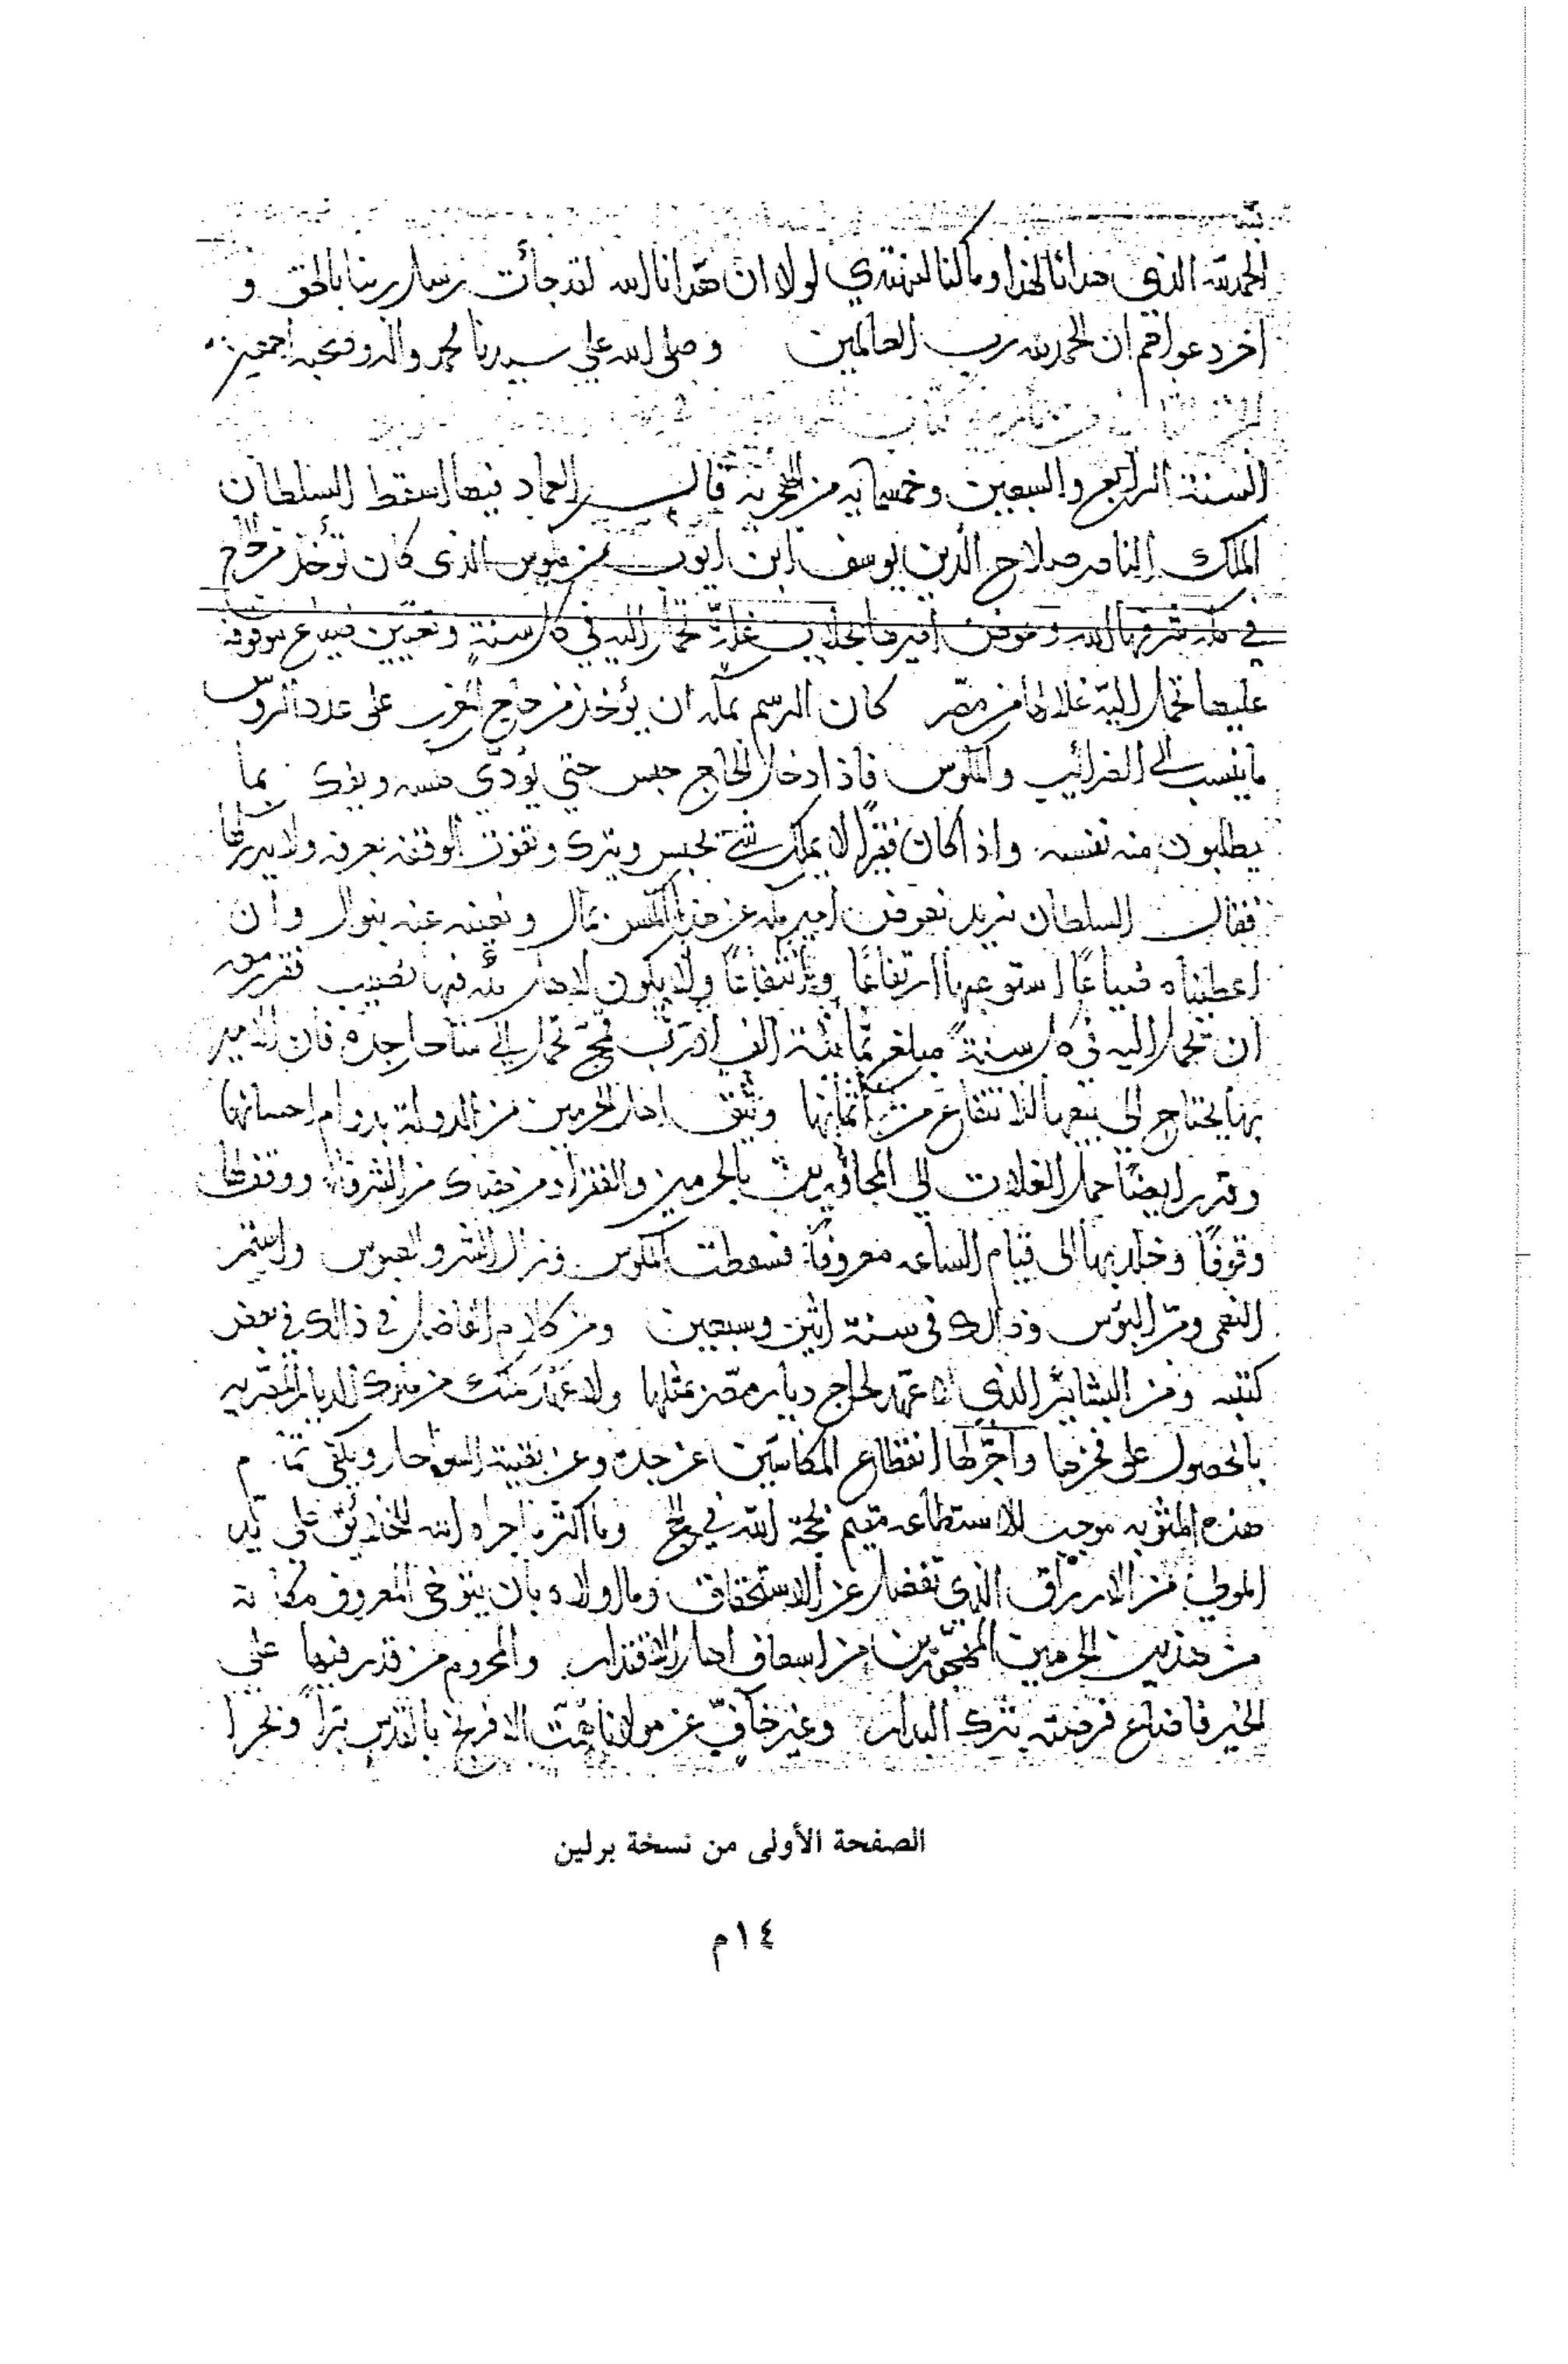 الحمد لله الذي هدانا لهذا وما كنا لنهتدي لولا ان هدانا الله لقد جأت رسل ربنا بالحق و
اخر دعواهم ان الحمد لله رب العالمين وصلى الله علي سيدنا محمد واله وصحبه اجمعين
السنة الرابعه والسبعين وخمسمايه من الهجرية قال العماد فيها اسقط السلطان
الملك الناصر صلاح الدين يوسف ابن ايوب مكوس الذى كان تؤخذ من الحاج
في مكه شرفها الله وعوض اميرها بجلاب غلة تحمل اليه في كل سنة وتعيين ضياع موقوفه
عليها تحمل اليه غلالها من مصر كان الرسم بمكه ان يؤخذ من حاج المغرب على عدد الروس
ما ينسب الى الضرائب والمكوس فاذا دخل الحاج حبس حتى يؤدي مكسه ويفك بما
يطلبون منه نفسه واذا كان فقيرًا لا يملك شئ يحبس ويترك وتفوت الوقفه بعرفه ولا يدركها
فقال السلطان نريد نعوض امير مكه عن هذا المكس بمال ونعينه عنه بنوال وان
اعطيناه ضياعًا استوعبها ارتفاعًا وانتفاعًا ولا يكون لاهل مكه فيها نصيب فقرر معه
ان تحمل اليه في كل سنة مبلغ ثمانية الف اردب قمح تحمل الي ساحل جده فان الامير
بها يحتاج الي بيعها للانتفاع من اثمانها ويثق اهل الحرمين من الدولة بدوام احسانها
وقرر ايضًا حمل الغلات الي المجاورين بالحرمين والفقراء من هناك من الشرفاء ووقف لها
وقوفًا وخلد بها الى قيام الساعه معروفًا فسقطت المكوس وزال البشر والعبوس واستمر
النعمى ومر البؤس وذالك في سنة اثنين وسبعين ومن كلام الفاضل في ذالك في بعض
كتبه ومن البشائر الذي لا عهد لحاج ديار مصر بمثلها ولا عهد ملك من ملوك الديار المصريه
بالحصول على فخرها واجرها انقطاع المكاسين عن جده وعن بقية السواحل ويكفى تمام
هذه المثوبه موجب للاستطاعه مقيم لحجة الله في الحج وما اكثر ما اجراه الله للخلائق على يد
المولي من الارزاق الذي تفضل عن الاستحقاق وما اولاه بان يتوخى المعروف مكانه
من هذين الحرمين المهجورين من اسعاف اهل الاقتدار والمحروم من قدر فيها علي
الخير فاضاع فرضته بترك البدار وغير خافٍ عن مولانا همة الافرنج بالقدس برًا وبحرا
الصفحة الأولى من نسخة برلين
١٤م